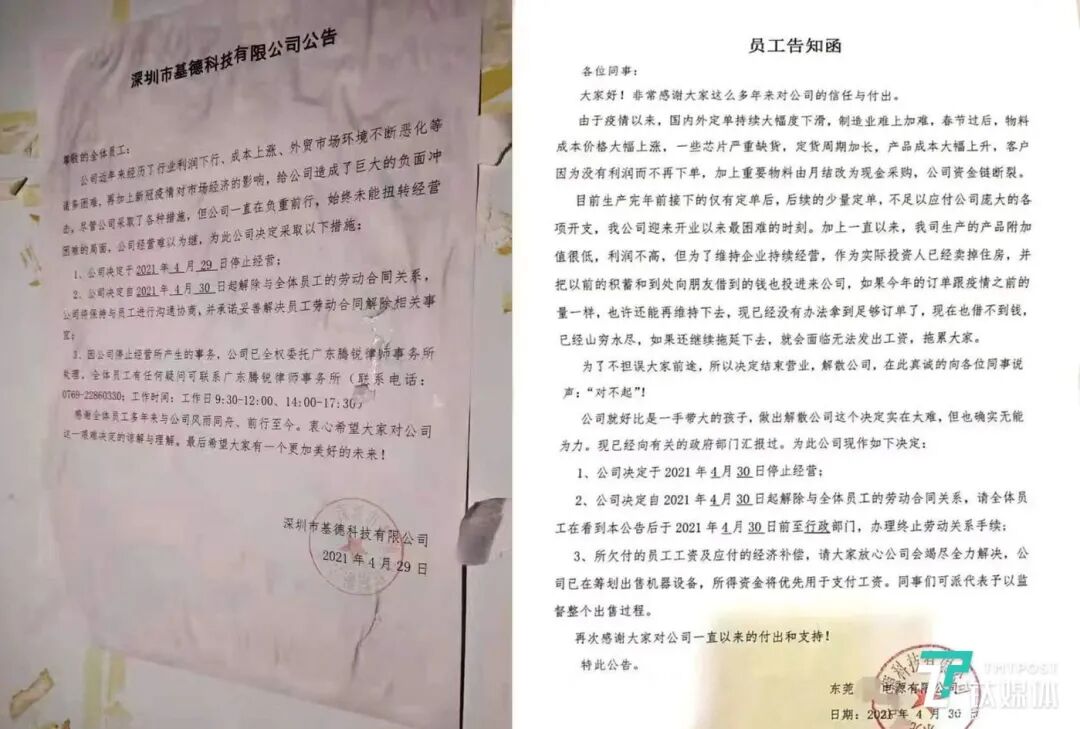 深圳市基德科技有限公司公告
尊敬的全体员工：
公司近年来经历了行业利润下行、成本上涨、外贸市场环境不断恶化等
诸多困难，再加上新冠疫情对市场经济的影响，给公司造成了巨大的负面冲
击。尽管公司采取了各种措施，但公司一直在负重前行，始终未能扭转经营
困难的局面，公司经营难以为继，为此公司决定采取以下措施：
1、公司决定于 2021 年 4 月 29 日停止经营；
2、公司决定自 2021 年 4 月 30 日起解除与全体员工的劳动合同关系，
公司将保持与员工进行沟通协商，并承诺妥善解决员工劳动合同解除相关事
宜；
3、因公司停止经营所产生的事务，公司已全权委托广东腾锐律师事务所
处理。全体员工有任何疑问可联系广东腾锐律师事务所（联系电话：
0769-22860330；工作时间：工作日 9:30-12:00、14:00-17:30）
感谢全体员工多年来与公司风雨同舟、前行至今。衷心希望大家对公司
这一艰难决定的谅解与理解。最后希望大家有一个更加美好的未来！
深圳市基德科技有限公司
2021 年 4 月 29 日
员工告知函
各位同事：
大家好！非常感谢大家这么多年来对公司的信任与付出。
由于疫情以来，国内外定单持续大幅度下滑，制造业难上加难，春节过后，物料
成本价格大幅上涨，一些芯片严重缺货，定货周期加长，产品成本大幅上升，客户
因为没有利润而不再下单，加上重要物料由月结改为现金采购，公司资金链断裂。
目前生产完年前接下的仅有定单后，后续的少量定单，不足以应付公司庞大的各
项开支，我公司迎来开业以来最困难的时刻。加上一直以来，我司生产的产品附加
值很低，利润不高，但为了维持企业持续经营，作为实际投资人已经卖掉住房，并
把以前的积蓄和到处向朋友借到的钱也投进来公司，如果今年的订单跟疫情之前的
量一样，也许还能再维持下去，现已经没有办法拿到足够订单了，现在也借不到钱，
已经山穷水尽，如果还继续拖延下去，就会面临无法发出工资，拖累大家。
为了不担误大家前途，所以决定结束营业，解散公司，在此真诚的向各位同事说
声：“对不起”！
公司就好比是一手带大的孩子，做出解散公司这个决定实在太难，但也确实无能
为力。现已经向有关的政府部门汇报过。为此公司现作如下决定：
1、公司决定于 2021 年 4 月 30 日停止经营；
2、公司决定自 2021 年 4 月 30 日起解除与全体员工的劳动合同关系，请全体员
工在看到本公告后于 2021 年 4 月 30 日前至行政部门，办理终止劳动关系手续；
3、所欠付的员工工资及应付的经济补偿，请大家放心公司会竭尽全力解决，公
司已在筹划出售机器设备，所得资金将优先用于支付工资。同事们可派代表予以监
督整个出售过程。
再次感谢大家对公司一直以来的付出和支持！
特此公告。
东莞 电源有限公司
日期：2021 年 4 月 30 日
TMTPOST
钛媒体